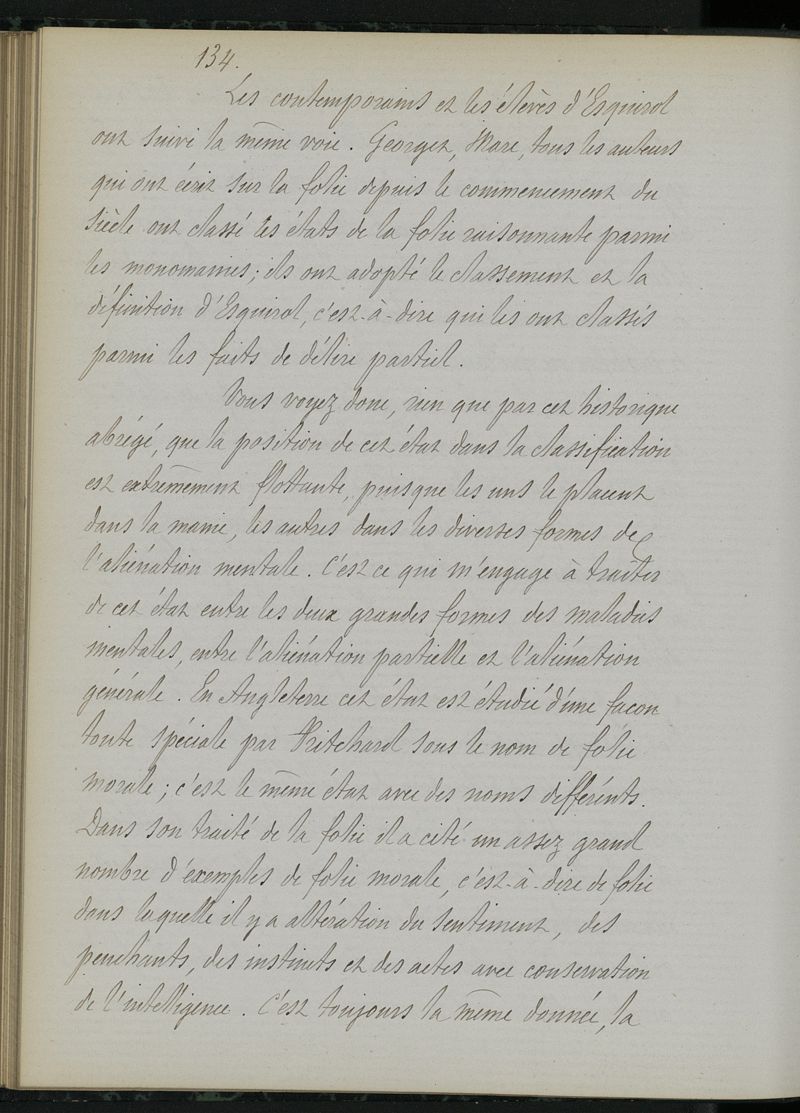 134.
Les contemporains et les élèves d'Esquirol
ont suivi la même voie. Georget, Marc, tous les auteurs
qui ont écrit sur la folie depuis le commencement du
siècle ont classé les états de la folie raisonnante parmi
les monomanies; ils ont adopté le classement et la
définition d'Esquirol, c'est-à-dire qui les ont classés
parmi les faits de délire partiel.
Vous voyez donc, rien que par cet historique
abrégé, que la position de cet état dans la classification
est extrêmement flottante, puisque les uns le placent
dans la manie, les autres dans les diverses formes de
l'aliénation mentale. C'est ce qui m'engage à traiter
de cet état entre les deux grandes formes des maladies
mentales, entre l'aliénation partielle et l'aliénation
générale. En Angleterre cet état est étudié d'une façon
toute spéciale par Pritchard sous le nom de folie
morale; c'est le même état avec des noms différents.
Dans son traité de la folie il a cité un assez grand
nombre d'exemples de folie morale, c'est-à-dire de folie
dans laquelle il y a altération du sentiment, des
penchants, des instincts et des actes avec conservation
de l'intelligence. C'est toujours la même donnée, la